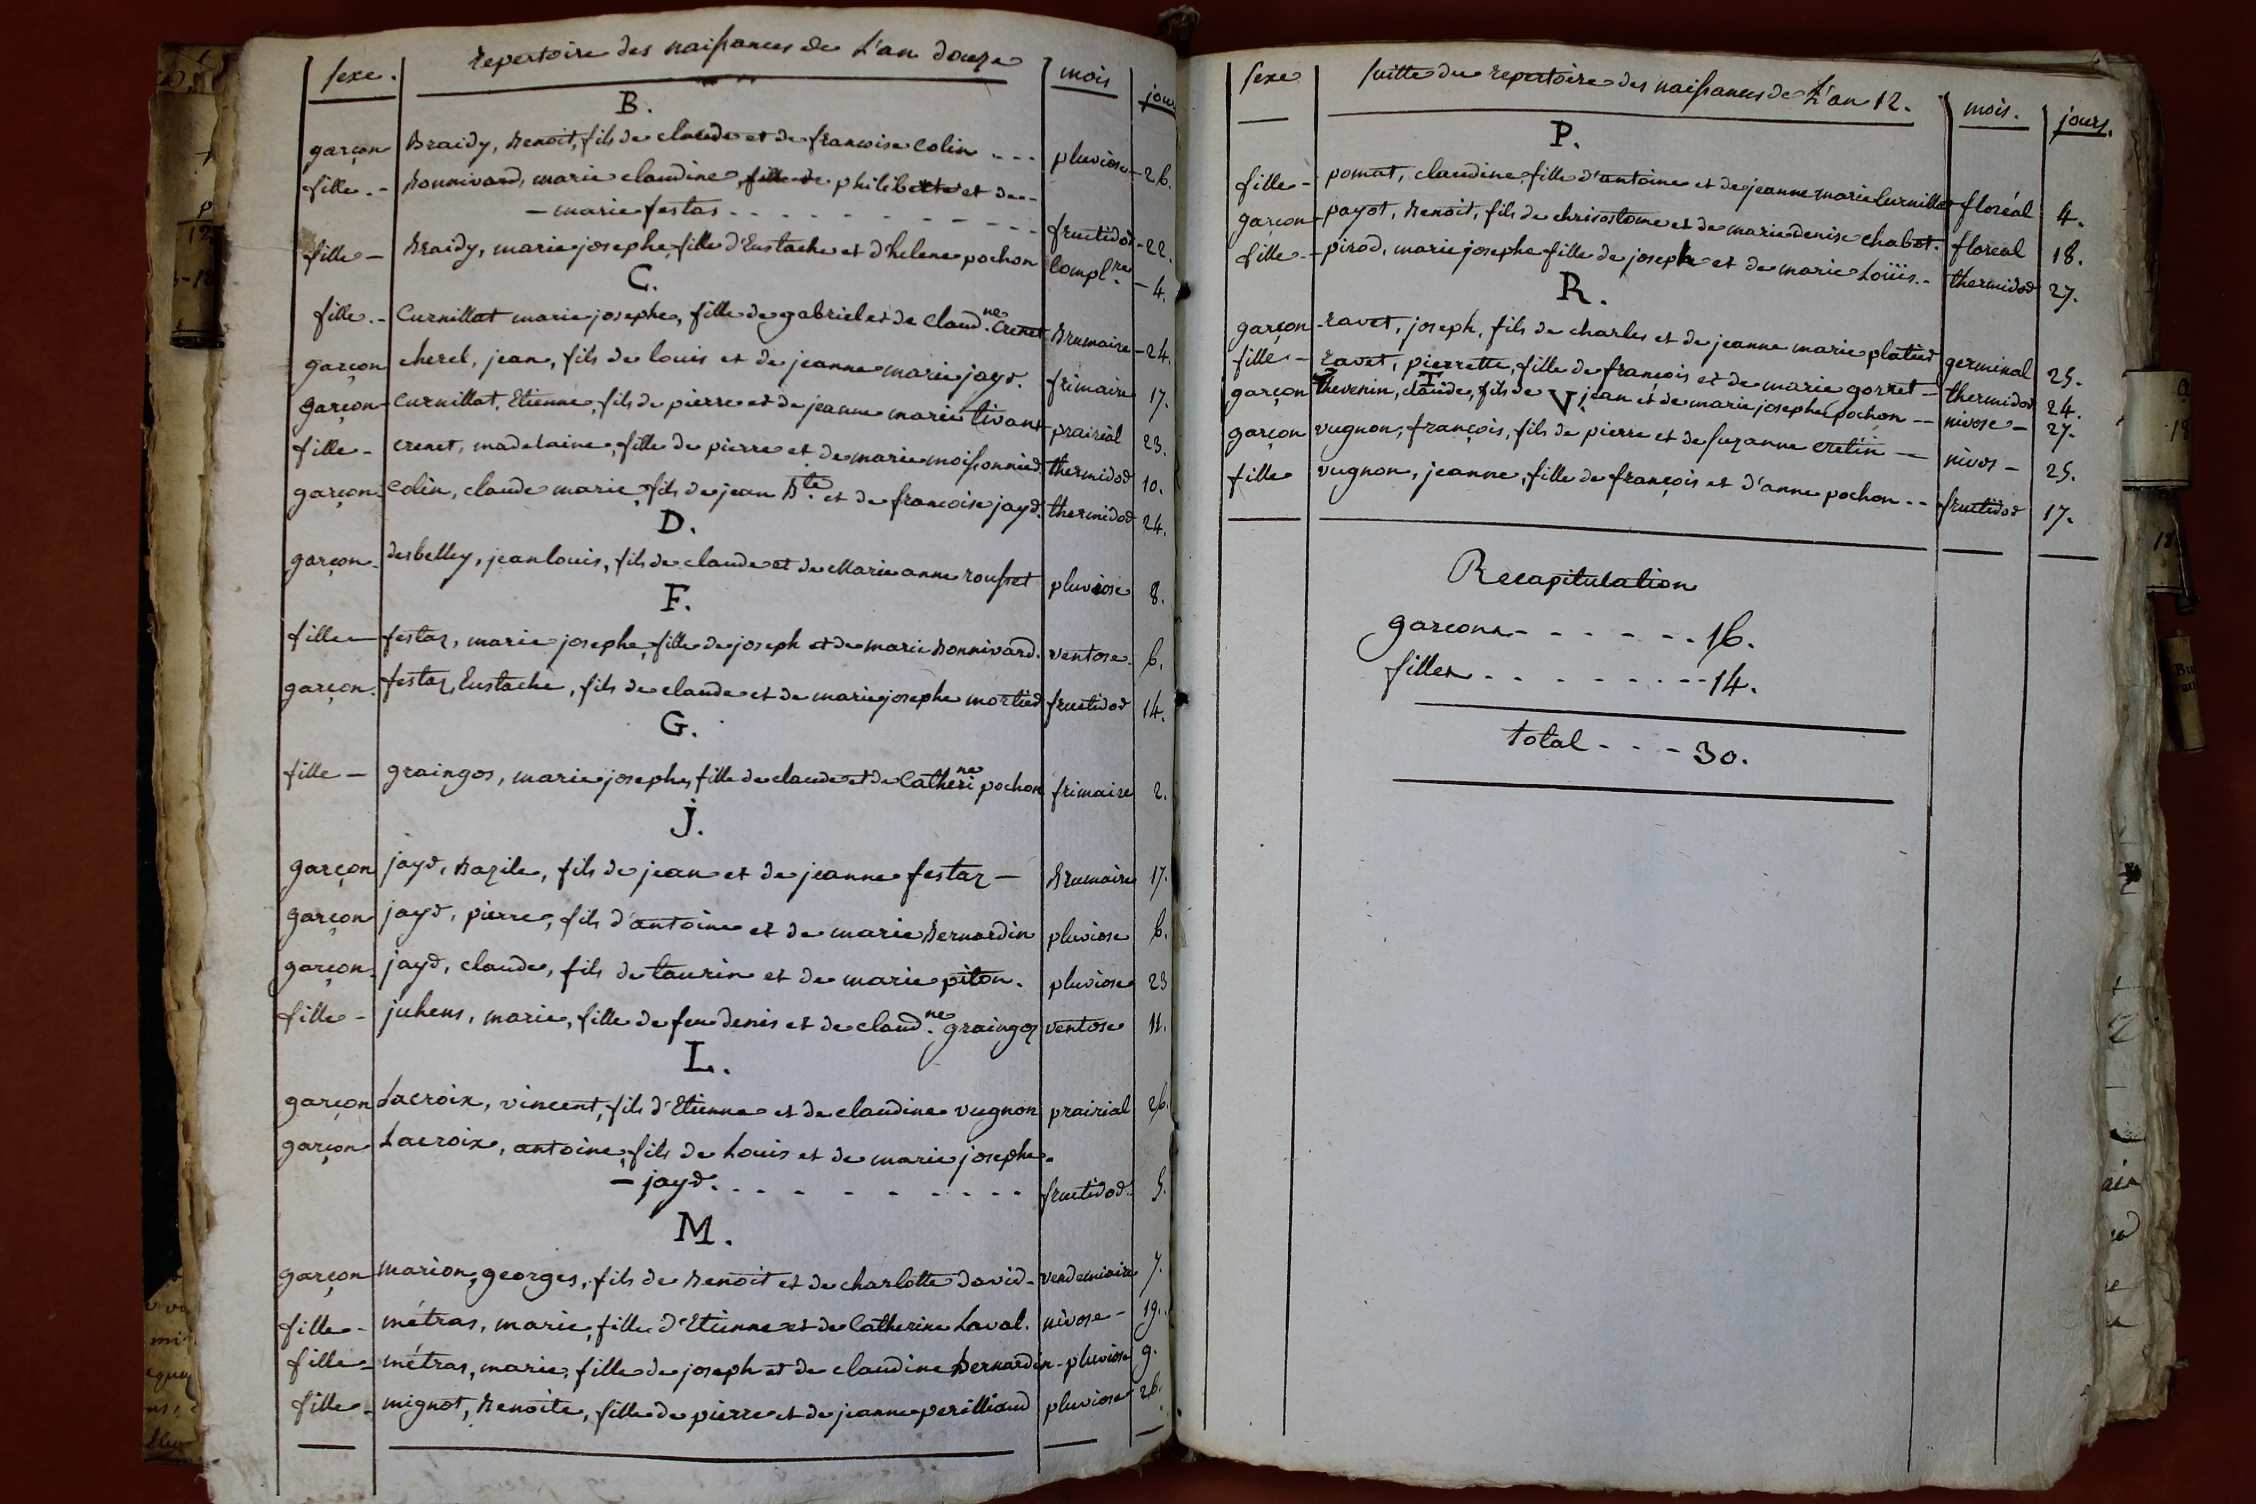 sexe. repertoire des naissances de L'an douze mois jour
B.
garçon Braidy, Benoit, fils de claude et de francoise Colin - - - pluviose - 26.
fille. - Bonnivard, marie claudine, fille de philiberte et de -
- marie festas - - - - - - - - - - fructidor - 22.
fille - Braidy, marie josephe, fille d'Eustache et d'helene pochon Compl.re - 4.
C.
fille. - Curnillat marie josephe, fille de gabriel et de Claud.ne Crenet Brumaire - 24.
garçon cherel, jean, fils de louis et de jeanne marie jayr. frimaire 17.
garçon - Curnillat, Etienne, fils de pierre et de jeanne marie tivant prairial 23.
fille - crenet, madelaine, fille de pierre et de marie moissonnier thermidor 10.
garçon - Colin, claude marie, fils de jean B.te et de francoise jayr. thermidor 24.
D.
garçon - desbelley, jean louis, fils de claude et de Marie anne rousset pluviose 8.
F.
fille - festaz, marie josephe, fille de joseph et de marie Bonnivard. ventose. 6.
garçon. festaz, Eustache, fils de claude et de marie josephe mortier fructidor 14.
G.
fille - graingos, marie josephe, fille de claude et de Catheri.ne pochon frimaire 2.
j.
garçon jayr, Bazile, fils de jean et de jeanne festaz - Brumaire 17.
garçon jayr, pierre, fils d'antoine et de marie Bernardin pluviose 6.
garçon. jayr, claude, fils de taurin et de marie piton. pluviose 23
fille - juhens, marie, fille de feu denis et de claud.ne graingoz ventose 11.
L.
garçon Lacroix, vincent, fils d'Etienne et de claudine vugnon prairial 26.
garçon Lacroix, antoine, fils de Louis et de marie josephe -
- jayr. - - - - - - - - - fructidor. 5.
M.
garçon marion, georges, fils de Benoit et de charlotte david - vendemiaire 7.
fille - métras, marie, fille d'Etienne et de Catherine Laval. nivose - 19.
fille - métras, marie, fille de joseph et de claudine Bernardin - pluviose 9.
fille - mignot, Benoite, fille de pierre et de jeanne perilliand pluviose 26.
sexe suitte du repertoire des naissances de L'an 12. mois. jours.
P.
fille - pomat, claudine, fille d'antoine et de jeanne marie Curnillat floréal 4.
garçon - payot, Benoit, fils de chrisostome et de marie denise chabot. floreal 18.
fille - pirod, marie josephe fille de joseph et de marie Loüis. - thermidor 27.
R.
garçon - ravet, joseph, fils de charles et de jeanne marie platier germinal 25.
fille - ravet, pierrette, fille de françois et de marie gorret - thermidor 24.
T
garçon thevenin, claude, fils de jean et de marie josephe pochon - - nivose - 27.
V
garçon vugnon, françois, fils de pierre et de suzanne cretin - nivos - 25.
fille vugnon, jeanne, fille de françois et d'anne pochon - - fructidor 17.
Recapitulation
garcons - - - - - - - 16.
filles - - - - - - - - 14.
total - - - 30.